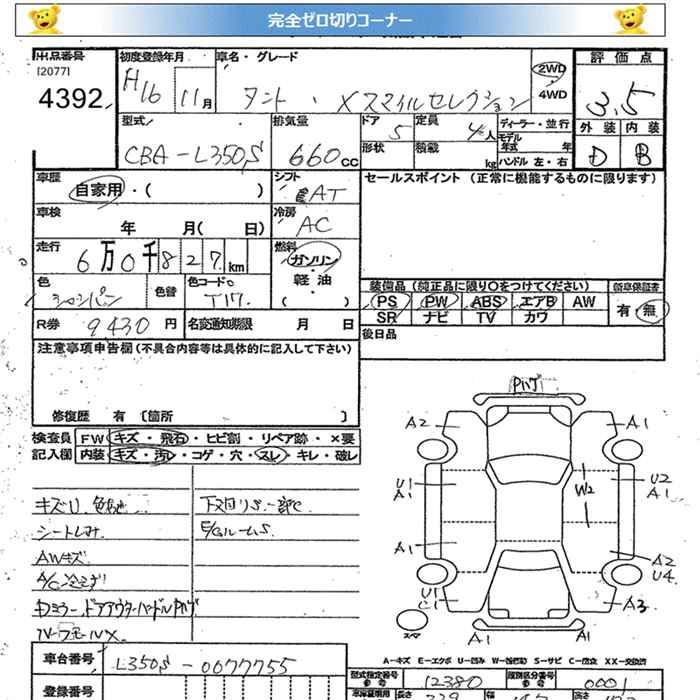 完全ゼロ切りコーナー
出品番号 初度登録年月 車名・グレード 評価点
[2077]
4392 H16 11月 タント・Xスマイルセレクション 2WD 4WD 3.5
外装 内装
D B
型式 排気量 ドア 定員 ディーラー・並行
CBA-L350S 660cc 5 4人 モデル年式 年
形状 積載 kg ハンドル 左・右
車歴 シフト セールスポイント (正常に機能するものに限ります)
自家用・( ) AT
車検 冷房
年 月( 日) AC
走行 燃料
6万0千827km ガソリン・軽油・( )
色 色替 カラーコードNo
シャンパン T17
装備品(純正品に限り○をつけてください) 新車保証書
PS PW ABS エアB AW 有・無
SR ナビ TV カワ
R券 9430円 名変通知期限 月 日 後日品
注意事項申告欄(不具合内容等は具体的に記入して下さい)
修復歴 有 〔箇所 〕
検査員記入欄 FW キズ・飛石・ヒビ割・リペア跡・×要
内装 キズ・汚・コゲ・穴・スレ・キレ・破レ
キズU 下回りS一部C
E/GルームS
AWキズ
A2 A1
U1 A1 W2 U2 A1
A1 A2 U4
U1 C1 A3
スペア A1 A1
A-キズ E-エクボ U-凹み W-補修跡 S-サビ C-腐食 XX-交換済
車台番号 L350S-0077755
型式指定番号 12380 類別区分番号 0001
登録番号